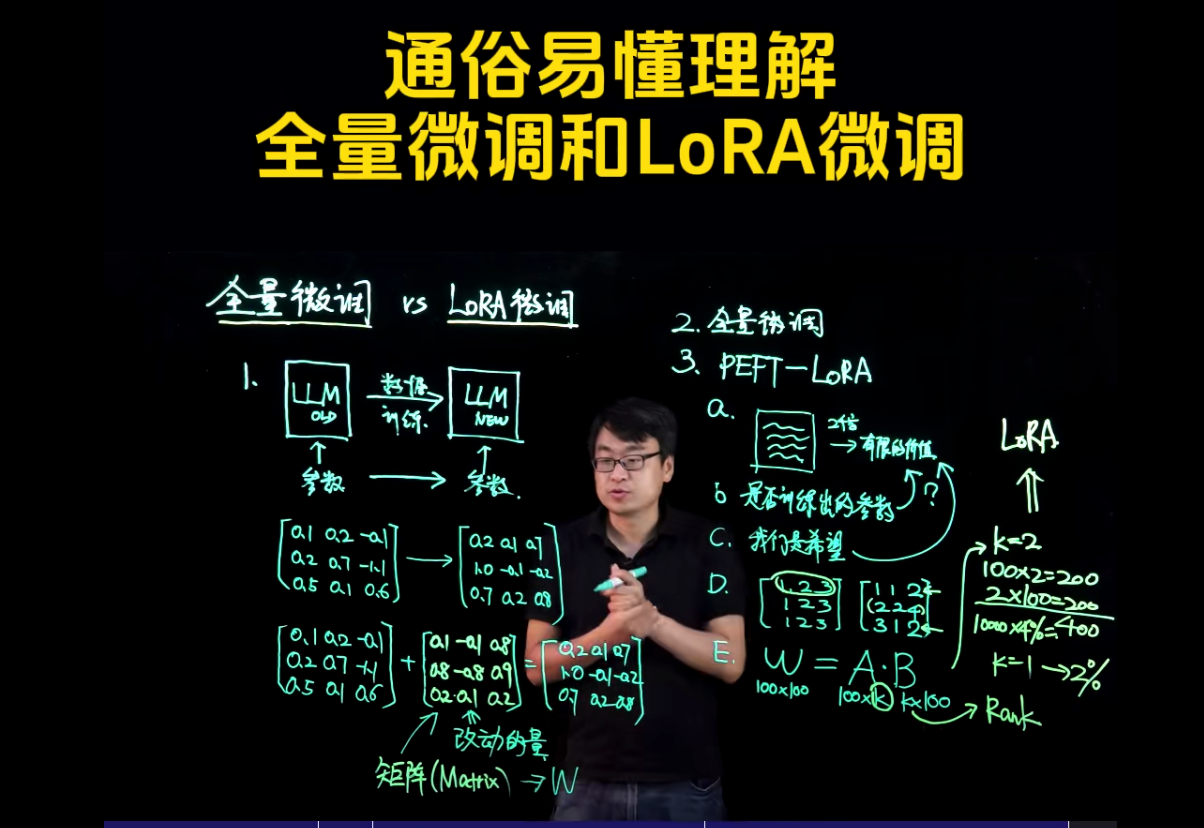 通俗易懂理解
全量微调和LoRA微调
全量微调 vs LoRA微调
1.
LLM
OLD
数据
训练
LLM
NEW
参数
参数.
0.1 0.2 -0.1
0.2 0.7 -1.1
0.5 0.1 0.6
0.2 0.1 0.7
1.0 -0.1 -0.2
0.7 0.2 0.8
0.1 0.2 -0.1
0.2 0.7 -1.1
0.5 0.1 0.6
+
0.1 -0.1 0.8
0.8 -0.8 0.9
0.2 0.1 0.2
=
0.2 0.1 0.7
1.0 -0.1 -0.2
0.7 0.2 0.8
改动的量
矩阵(Matrix) → W
2. 全量微调
3. PEFT-LoRA
a.
→ 有限的价值
b 是否训练出的参数
?
C. 我们是希望
D.
1 2 3
1 2 3
1 2 3
1 1 2
2 2 4
3 1 2
E. W = A·B
100x100
100xk kx100
Rank
LoRA
k=2
100x2=200
2x100=200
1000x4%=400
k=1 → 2%